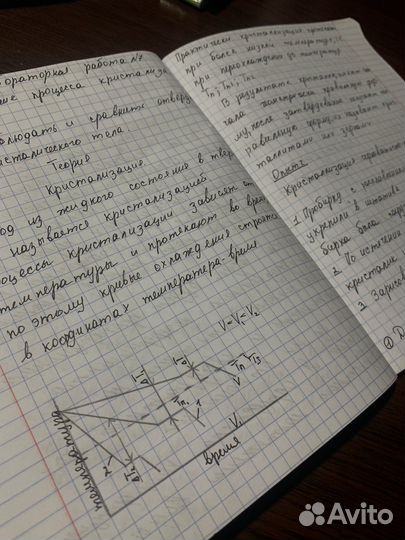 ораторная работа №2
ние процесса кристализа
блюдать и сравнить отверд
исталического тела.
Теория
Кристализация
од из жидкого состояния в тверд
называется кристализацией
роцессы кристализации зависят от
температуры и протекают во време
по этому кривые охлаждения строятся
в координатах температера-время
V=V1=V2
ΔT1
Tn1
V
1
2
V1
температура
время
Практически кристализация протекает
при более низкой температуре, т.е
при переохлаждении до температур
Tn, Tn1, Tn2
В результате кристализации
му, после затвердевания
кристалитами или зернами.
Опыт 1
Кристализация
1 Пробирку с
укрепили в штативе
бирка была
2 По истечении
кристалик
3 Зарисов
Avito